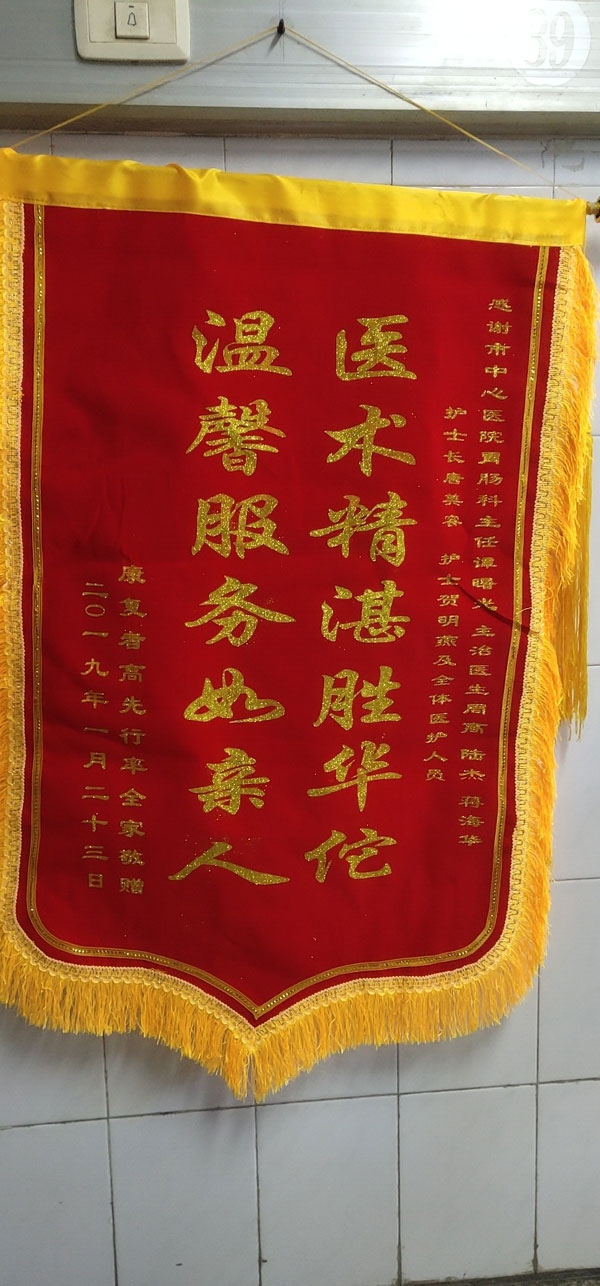 感谢市中心医院胃肠科主任谭曙光 主治医生周高 陆杰 蒋海华
护士长唐美容 护士贺明燕及全体医护人员
医术精湛胜华佗
温馨服务如亲人
康复者高先行率全家敬赠
二〇一九年一月二十三日
39